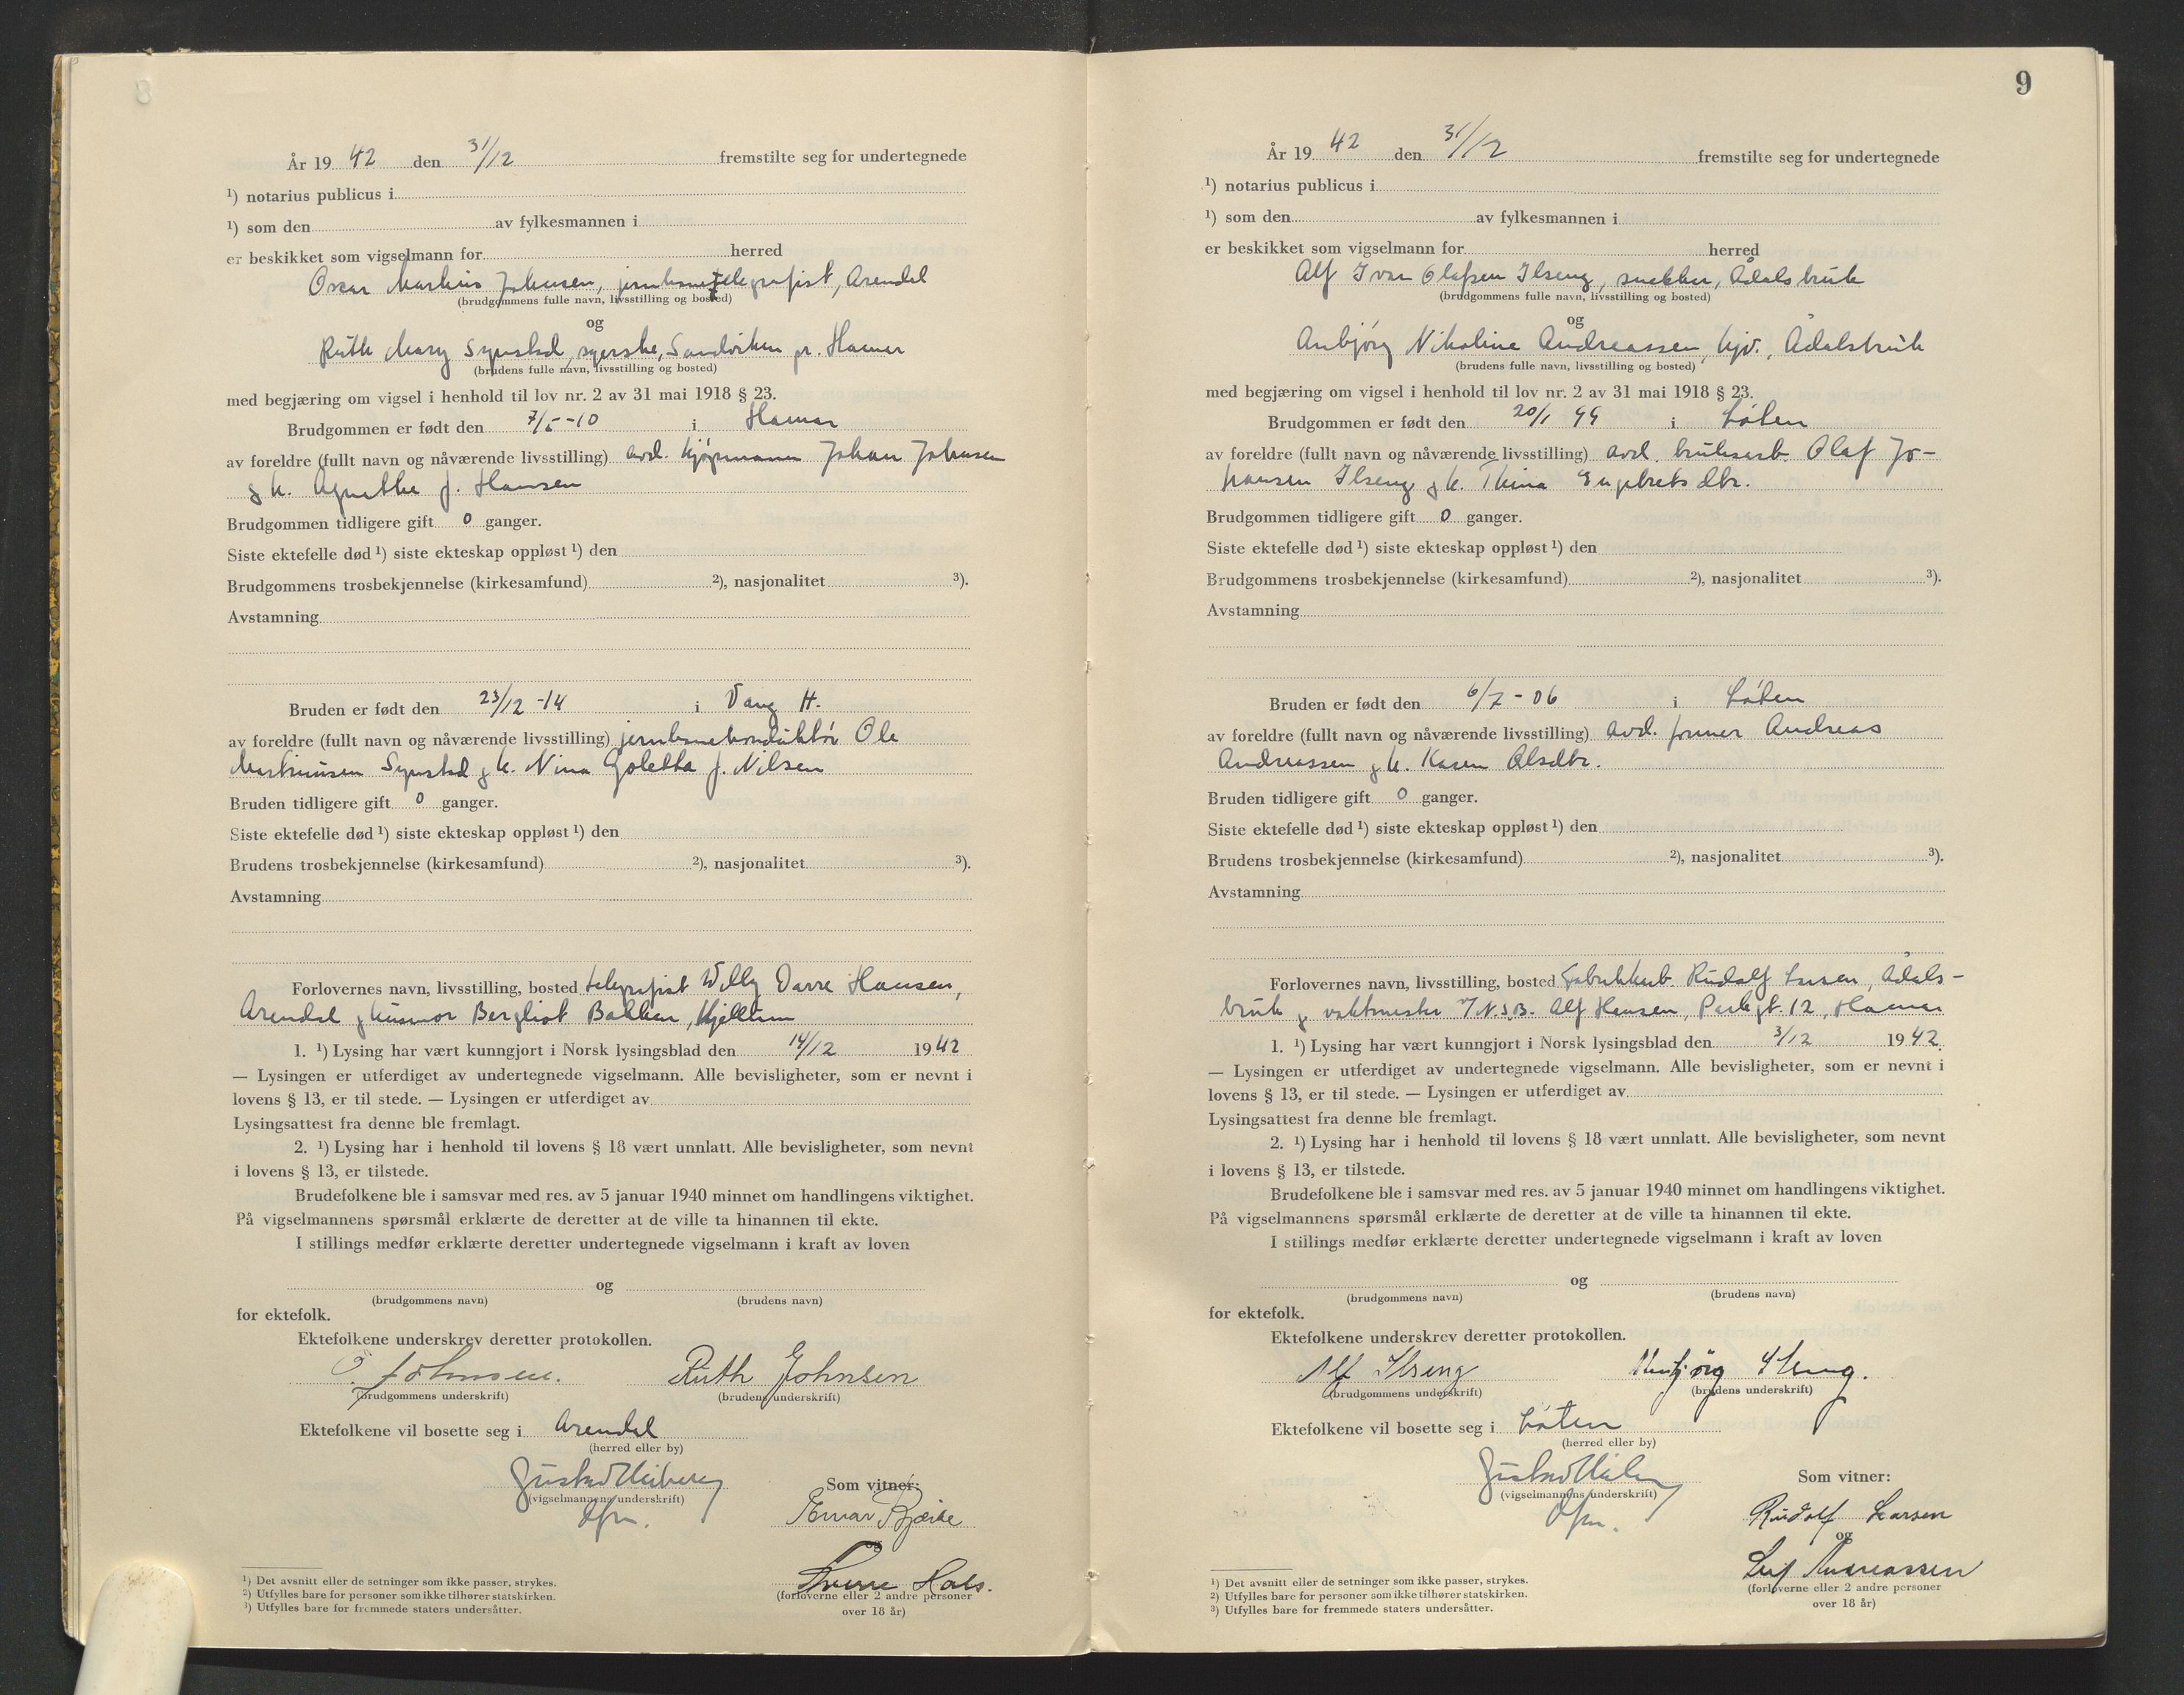 År 19 42 den 31/12 fremstilte seg for undertegnede
¹) notarius publicus i
¹) som den av fylkesmannen i
er beskikket som vigselmann for herred
Oscar Markus Johnsen, jernbanetelegrafist, Arendal
(brudgommens fulle navn, livsstilling og bosted)
og
Ruth Mary Synstad, syerske, Sandviken pr. Hamar
(brudens fulle navn, livsstilling og bosted)
med begjæring om vigsel i henhold til lov nr. 2 av 31 mai 1918 § 23.
Brudgommen er født den 7/5-10 i Hamar
av foreldre (fullt navn og nåværende livsstilling) avd. kjøpmann Johan Johnsen
og h. Agnethe f. Hansen
Brudgommen tidligere gift 0 ganger.
Siste ektefelle død ¹) siste ekteskap oppløst ¹) den
Brudgommens trosbekjennelse (kirkesamfund) ²), nasjonalitet ³).
Avstamning
Bruden er født den 23/12-14 i Vang H.
av foreldre (fullt navn og nåværende livsstilling) jernbanekonduktör Ole
Martinusen Synstad og h. Nina Goletta f. Nilsen
Bruden tidligere gift 0 ganger.
Siste ektefelle død ¹) siste ekteskap oppløst ¹) den
Brudens trosbekjennelse (kirkesamfund) ²), nasjonalitet ³).
Avstamning
Forlovernes navn, livsstilling, bosted telegrafist Willy Darre Hansen,
Arendal og husmor Bergliot Bakken, Hjellum
1. ¹) Lysing har vært kunngjort i Norsk lysingsblad den 14/12 1942
— Lysingen er utferdiget av undertegnede vigselmann. Alle bevisligheter, som er nevnt i
lovens § 13, er til stede. — Lysingen er utferdiget av
Lysingsattest fra denne ble fremlagt.
2. ¹) Lysing har i henhold til lovens § 18 vært unnlatt. Alle bevisligheter, som nevnt
i lovens § 13, er tilstede.
Brudefolkene ble i samsvar med res. av 5 januar 1940 minnet om handlingens viktighet.
På vigselmannens spørsmål erklærte de deretter at de ville ta hinannen til ekte.
I stillings medfør erklærte deretter undertegnede vigselmann i kraft av loven
og
(brudgommens navn) (brudens navn)
for ektefolk.
Ektefolkene underskrev deretter protokollen.
O. Johnsen. Ruth Johnsen
(brudgommens underskrift) (brudens underskrift)
Ektefolkene vil bosette seg i Arendal
(herred eller by)
Gustav Heiberg
(vigselmannens underskrift)
Som vitner:
Einar Bjerke
og
Sverre Hals.
(forloverne eller 2 andre personer
over 18 år)
¹) Det avsnitt eller de setninger som ikke passer, strykes.
²) Utfylles bare for personer som ikke tilhører statskirken.
³) Utfylles bare for fremmede staters undersåtter.
9
År 19 42 den 31/12 fremstilte seg for undertegnede
¹) notarius publicus i
¹) som den av fylkesmannen i
er beskikket som vigselmann for herred
Alf Ivar Olafsen Ilseng, snekker, Ådalsbruk
(brudgommens fulle navn, livsstilling og bosted)
og
Anbjörg Nikoline Andreassen, hjv., Ådalsbruk
(brudens fulle navn, livsstilling og bosted)
med begjæring om vigsel i henhold til lov nr. 2 av 31 mai 1918 § 23.
Brudgommen er født den 20/1 99 i Löten
av foreldre (fullt navn og nåværende livsstilling) avd. bruksarb. Olaf Jo-
hansen Ilseng og h. Thina Engebretsdtr.
Brudgommen tidligere gift 0 ganger.
Siste ektefelle død ¹) siste ekteskap oppløst ¹) den
Brudgommens trosbekjennelse (kirkesamfund) ²), nasjonalitet ³).
Avstamning
Bruden er født den 6/7-06 i Löten
av foreldre (fullt navn og nåværende livsstilling) avd. former Andreas
Andreassen og h. Karen Olsdtr.
Bruden tidligere gift 0 ganger.
Siste ektefelle død ¹) siste ekteskap oppløst ¹) den
Brudens trosbekjennelse (kirkesamfund) ²), nasjonalitet ³).
Avstamning
Forlovernes navn, livsstilling, bosted fabrikkarb. Rudolf Larsen, Ådals-
bruk og vaktmester v/N.S.B. Alf Hansen, Parkgt. 12, Hamar
1. ¹) Lysing har vært kunngjort i Norsk lysingsblad den 3/12 1942.
— Lysingen er utferdiget av undertegnede vigselmann. Alle bevisligheter, som er nevnt i
lovens § 13, er til stede. — Lysingen er utferdiget av
Lysingsattest fra denne ble fremlagt.
2. ¹) Lysing har i henhold til lovens § 18 vært unnlatt. Alle bevisligheter, som nevnt
i lovens § 13, er tilstede.
Brudefolkene ble i samsvar med res. av 5 januar 1940 minnet om handlingens viktighet.
På vigselmannens spørsmål erklærte de deretter at de ville ta hinannen til ekte.
I stillings medfør erklærte deretter undertegnede vigselmann i kraft av loven
og
(brudgommens navn) (brudens navn)
for ektefolk.
Ektefolkene underskrev deretter protokollen.
Alf Ilseng Anbjörg Ilseng.
(brudgommens underskrift) (brudens underskrift)
Ektefolkene vil bosette seg i Löten
(herred eller by)
Gustav Heiberg
(vigselmannens underskrift)
Som vitner:
Rudolf Larsen
og
Leif Andreassen
(forloverne eller 2 andre personer
over 18 år)
¹) Det avsnitt eller de setninger som ikke passer, strykes.
²) Utfylles bare for personer som ikke tilhører statskirken.
³) Utfylles bare for fremmede staters undersåtter.